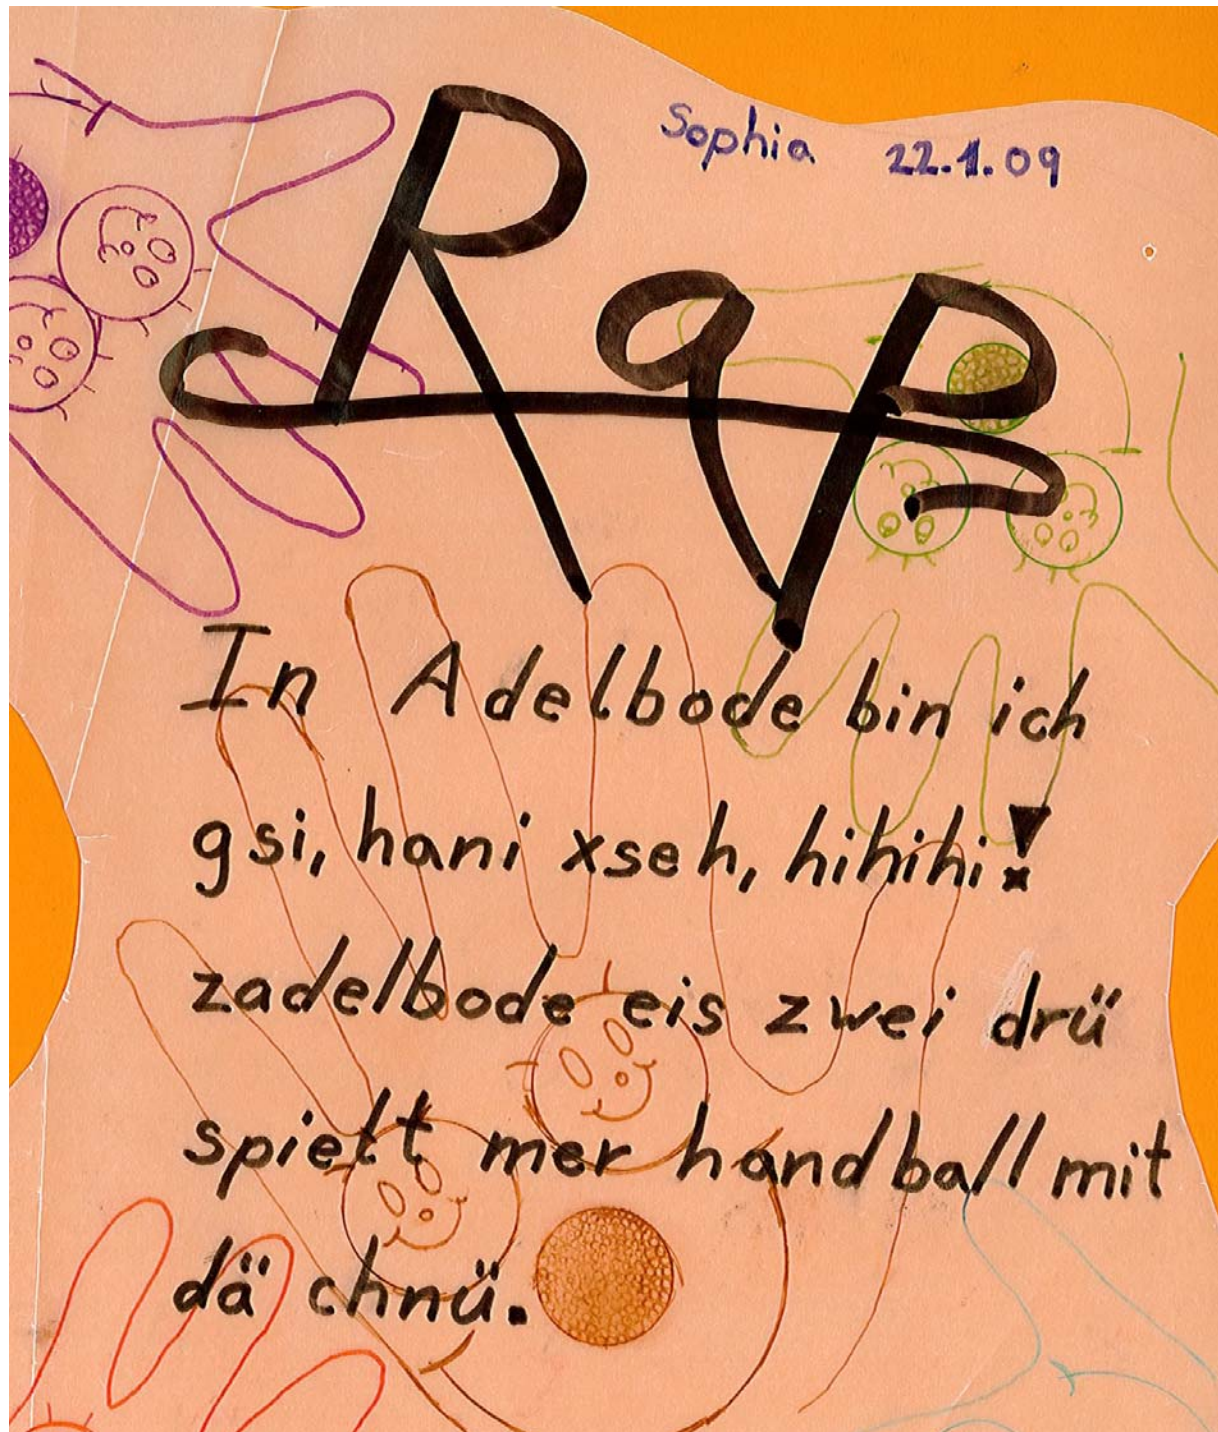 Sophia 22.1.09
Rap
In Adelbode bin ich
gsi, hani xseh, hihihi!
zadelbode eis zwei drü
spielt mer handball mit
dä chnü.